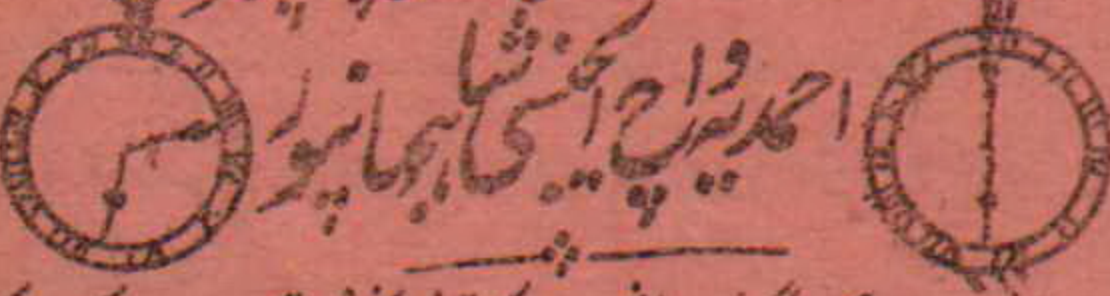 احمدیہ واچ ایجنسی شاہجہانپور